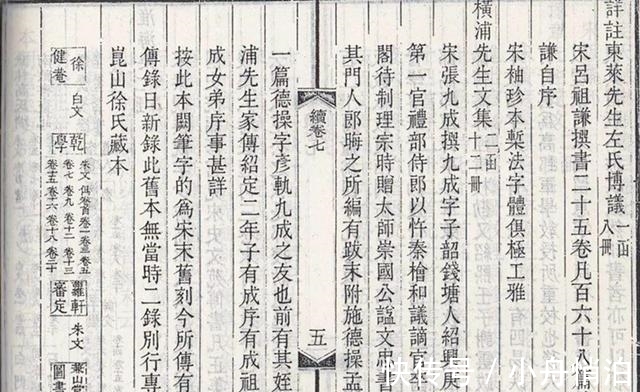 詳註東萊先生左氏博議 一函 八冊
宋呂祖謙撰書二十五卷凡百六十八篇
謙自序
宋袖珍本槧法字體俱極工雅
橫浦先生文集 二函 十二冊
宋張九成撰九成字子韶錢塘人紹興
第一官禮部侍郎以忤秦檜和議謫官卒
閣待制理宗時贈太師崇國公諡文忠書
其門人郎晦之所編有跋末附施德操孟
續卷七
五
一篇德操字彥軌九成之友也前有其姪
浦先生家傳紹定二年子有成序有成
成女弟序事甚詳
按此本闕筆字的為宋末舊刻今所傳有
傳錄日新錄此舊本無當時二錄別行專
崑山徐氏藏本
徐健菴 白文 乾學 朱文 俱卷首卷二卷三卷五
卷七卷九卷十二卷十三
卷十五卷十六卷十八卷二十 蘿軒審定 朱文 山堂圖書
快传号